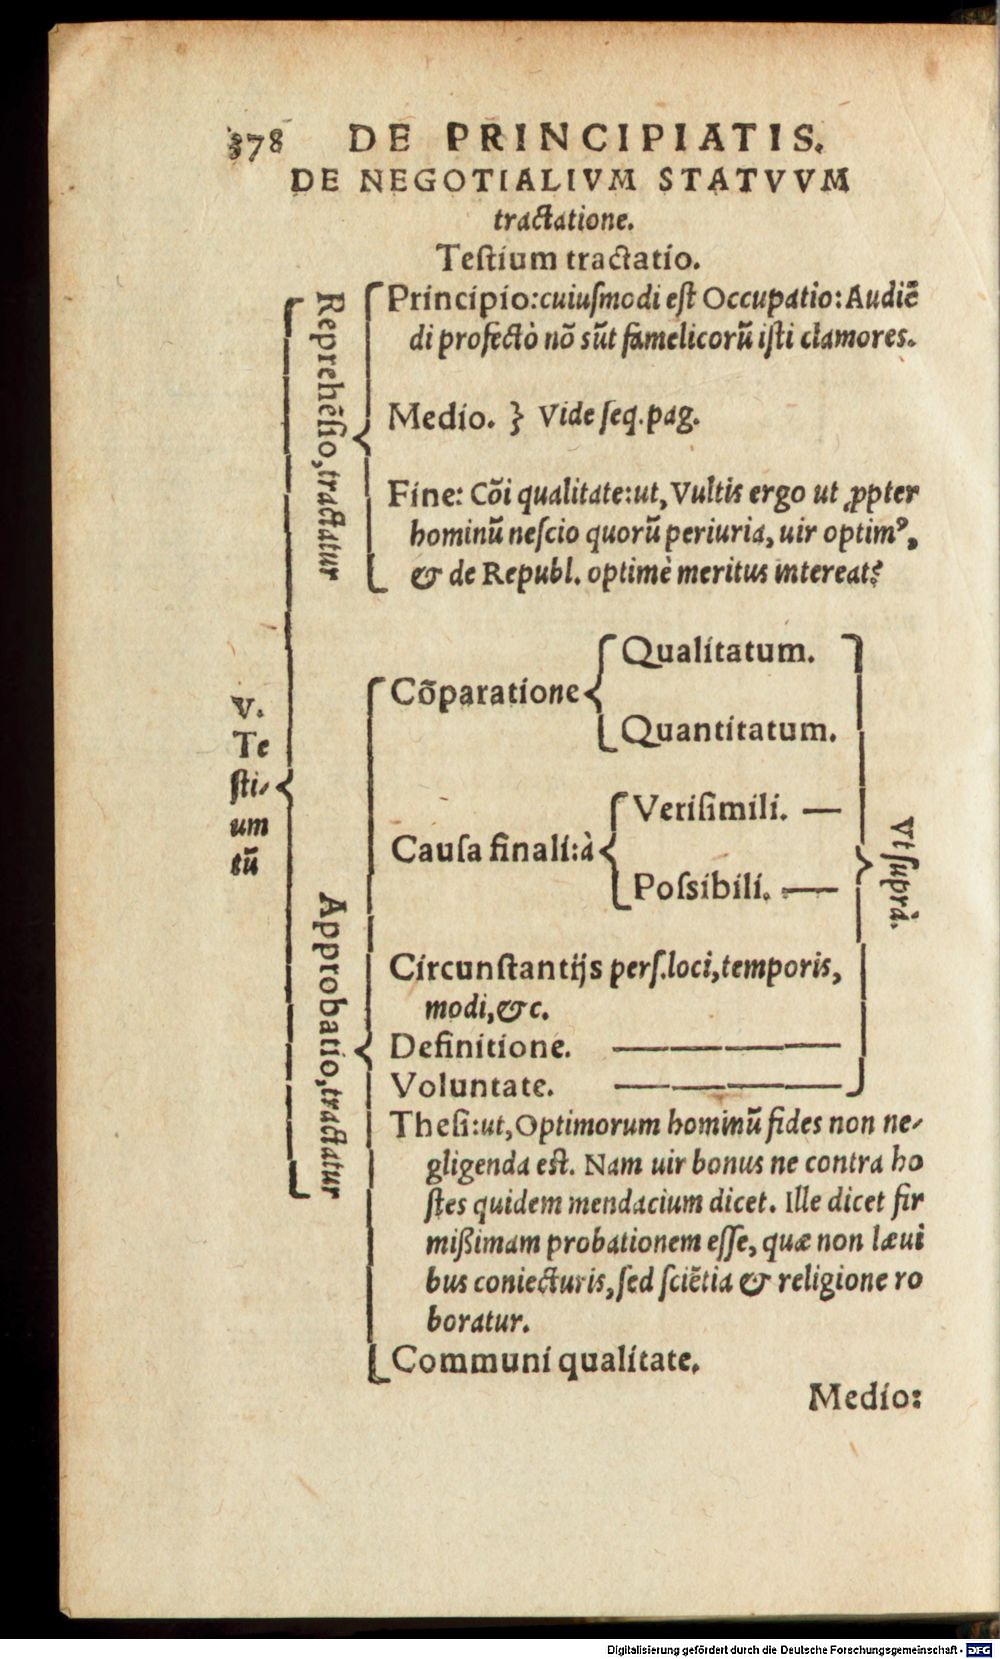 378 DE PRINCIPIATIS.
DE NEGOTIALIVM STATVVM
tractatione.
Teſtium tractatio.
V.
Te
ſti-
um
tū
Reprehēſio, tractatur
Principio: cuiuſmodi eſt Occupatio: Audiē
di profectò nō sūt famelicorū iſti clamores.
Medio. } Vide ſeq. pag.
Fine: Cōi qualitate: ut, Vultis ergo ut ꝓpter
hominū neſcio quorū periuria, uir optimꝰ,
& de Republ. optimè meritus intereat?
Approbatio, tractatur
Cōparatione
Qualitatum.
Quantitatum.
Cauſa finali: à
Veriſimili. —
Poſsibili. —
Circunſtantijs perſ. loci, temporis,
modi, &c.
Definitione. —
Voluntate. —
Vt ſuprà.
Theſi: ut, Optimorum hominū fides non ne-
gligenda eſt. Nam uir bonus ne contra ho
ſtes quidem mendacium dicet. Ille dicet fir
mißimam probationem eſſe, quæ non læui
bus coniecturis, ſed ſciētia & religione ro
boratur.
Communi qualitate.
Medio:
Digitalisierung gefördert durch die Deutsche Forschungsgemeinschaft - DFG